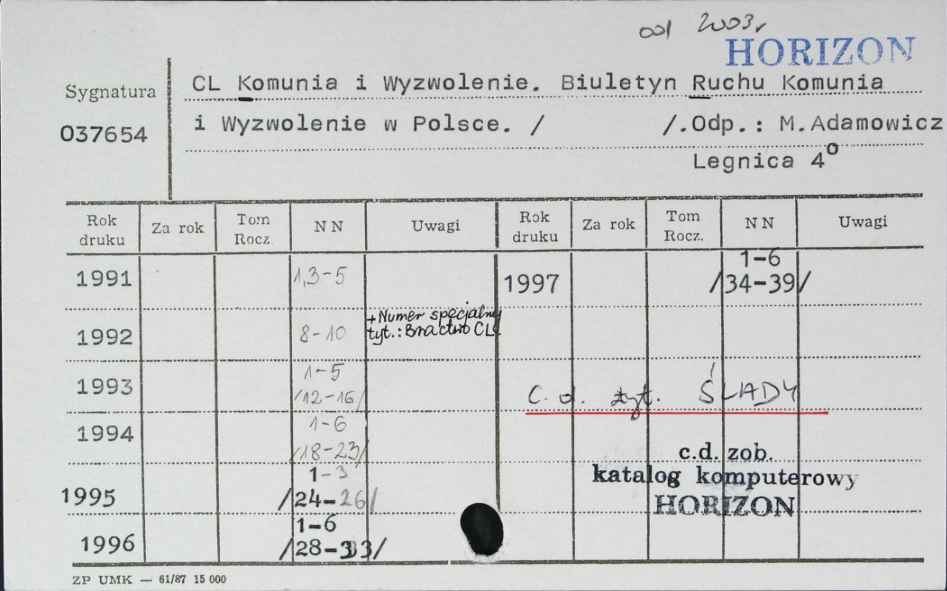 od 2003r
HORIZON
Sygnatura
037654
CL Komunia i Wyzwolenie. Biuletyn Ruchu Komunia
i Wyzwolenie w Polsce. / /.Odp.: M.Adamowicz
Legnica 4°
Rok druku Za rok Tom Rocz. NN Uwagi Rok druku Za rok Tom Rocz. NN Uwagi
1991 1,3-5 1997 1-6 /34-39/
1992 8-10 +Numer specjalny tyt.: Bractwo CL
1993 1-5 /12-16/
C. d. tyt. ŚLADY
1994 1-6 /18-23/
c.d. zob.
katalog komputerowy
HORIZON
1995 1-3 /24-26/
1996 1-6 /28-33/
ZP UMK — 61/87 15 000